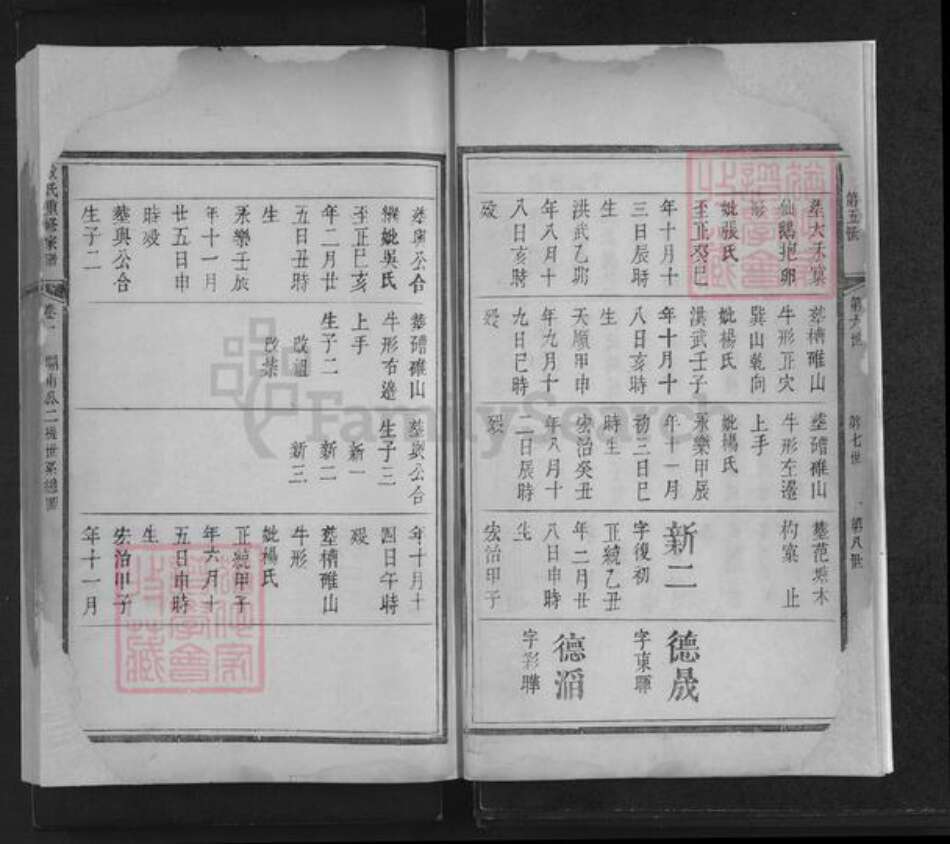 第五世
墓大禾窠
仙鵝抱卵
形
妣張氏
至正癸巳
年十月十
三日辰時
生
洪武乙卯
年八月十
八日亥時
歿
第六世
墓槽碓山
牛形正穴
巽山乾向
妣楊氏
洪武壬子
年十月十
八日亥時
生
天順甲申
年九月十
九日巳時
歿
第七世
墓碏碓山
牛形左邊
上手
妣楊氏
永樂甲辰
年十一月
初三日巳
時生
宏治癸丑
年八月十
二日辰時
歿
第八世
墓范塘木
杓窠 止
新二
字復初
正統乙丑
年二月廿
八日申時
生
宏治甲子
德晟
字東暉
德滔
字彩暉
氏重修家譜
卷一
葬廣公合
繼妣吳氏
至正巳亥
年二月廿
五日丑時
生
永樂壬辰
年十一月
廿五日申
時歿
墓與公合
生子二
墓碏碓山
牛形右邊
上手
生子二
改祖
改榮
墓與公合
生子三
新一
新二
新三
年十月十
四日午時
歿
墓槽碓山
牛形
妣楊氏
正統甲子
年六月十
五日申時
生
宏治甲子
年十一月
FamilySearch